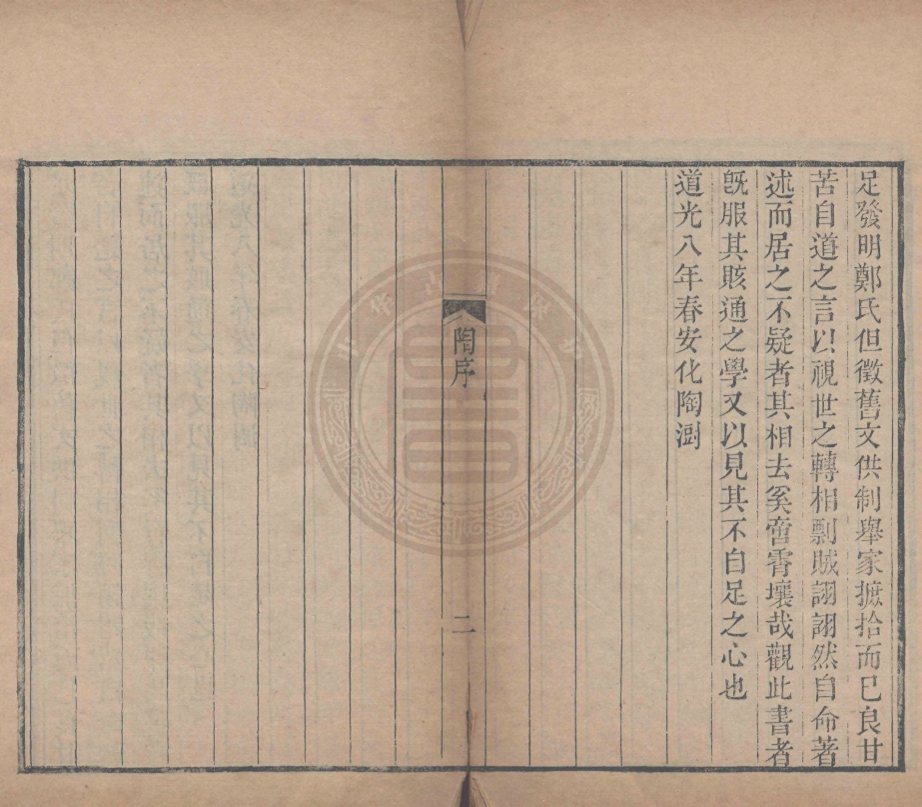 足發明鄭氏但徵舊文供制舉家摭拾而已良甘
苦自道之言以視世之轉相剽賊詡詡然自命著
述而居之不疑者其相去奚啻霄壤哉觀此書者
旣服其賅通之學又以見其不自足之心也
道光八年春安化陶澍
陶序
二